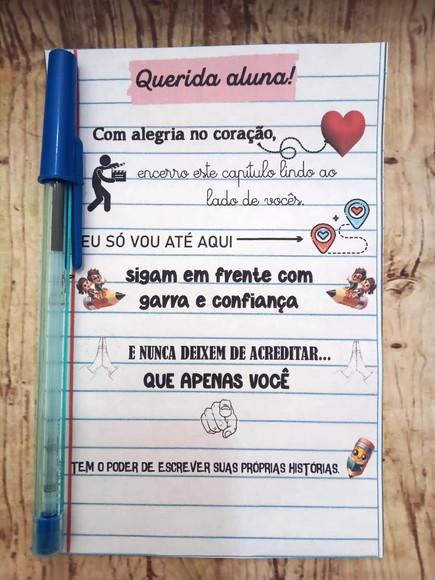 Querida aluna!
Com alegria no coração,
encerro este capítulo lindo ao
lado de vocês.
EU SÓ VOU ATÉ AQUI
sigam em frente com
garra e confiança
E NUNCA DEIXEM DE ACREDITAR...
QUE APENAS VOCÊ
TEM O PODER DE ESCREVER SUAS PRÓPRIAS HISTÓRIAS.